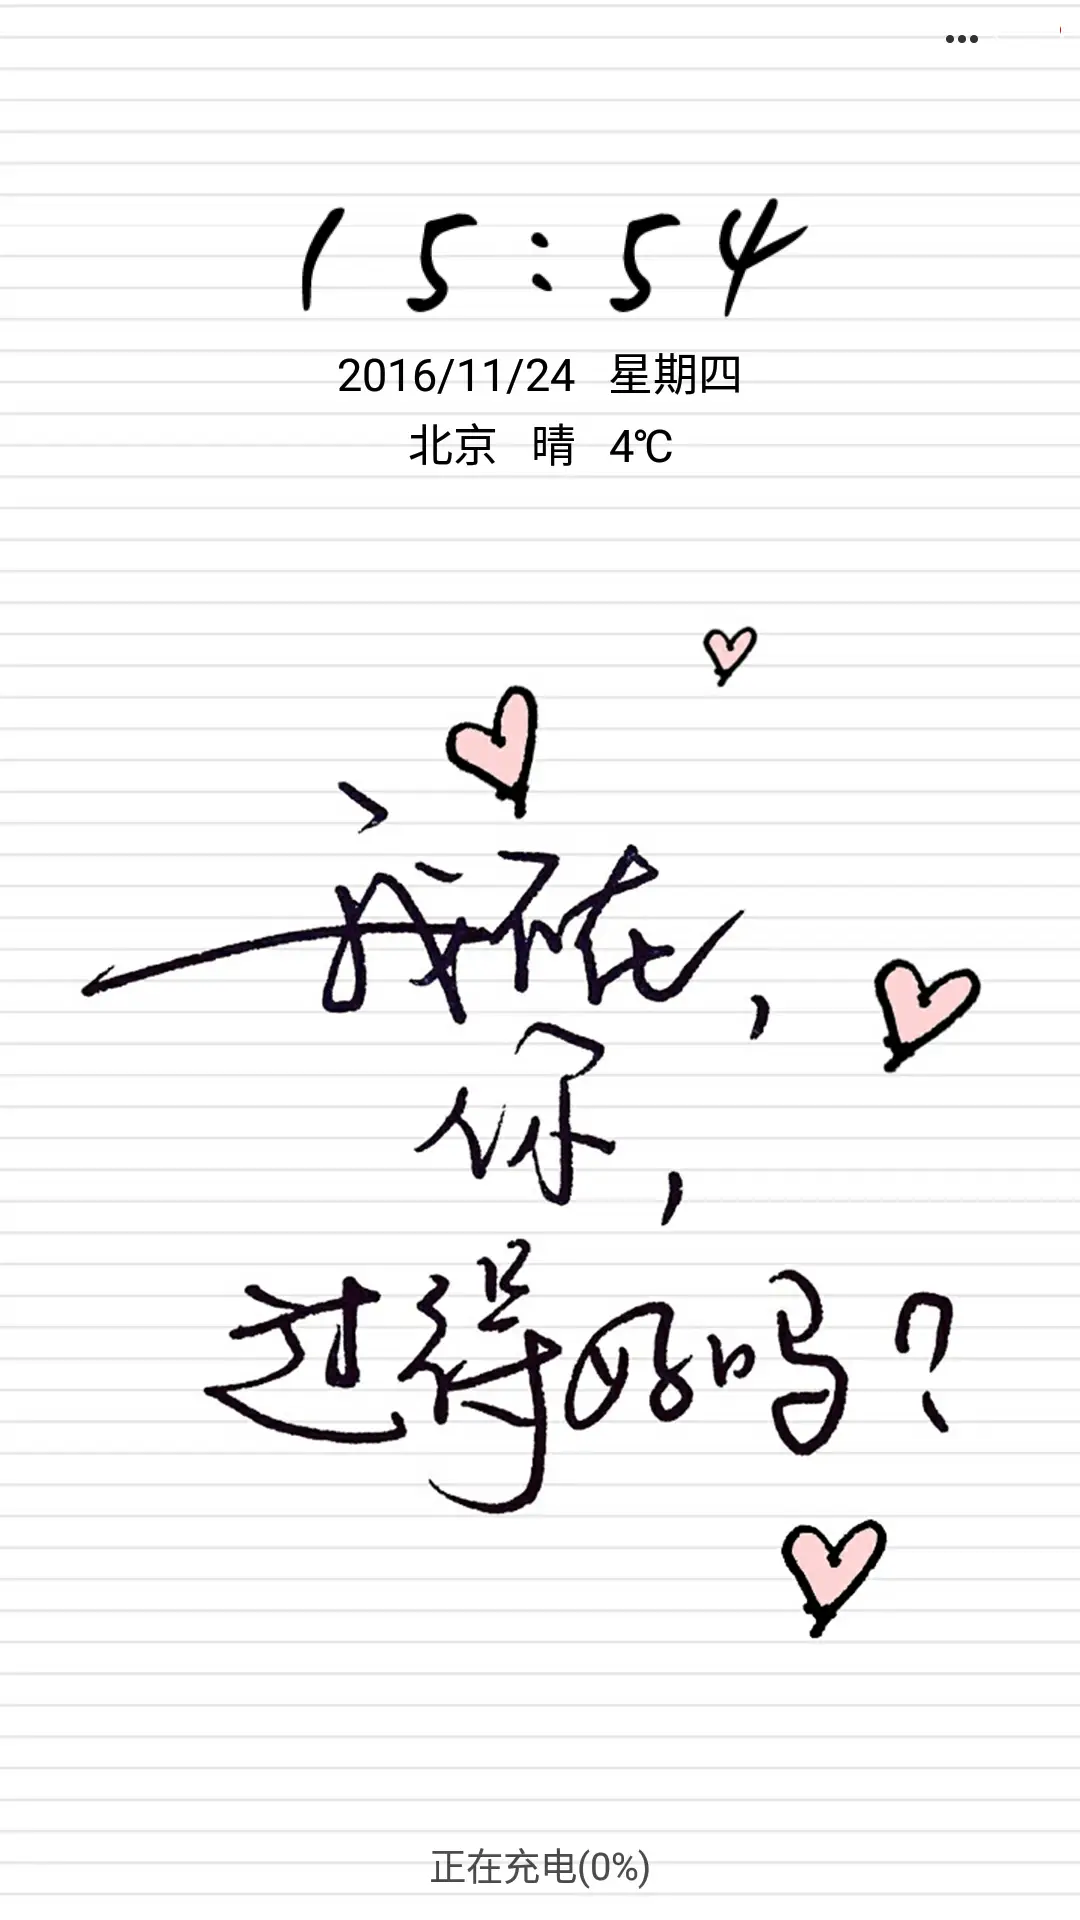 15:54
2016/11/24 星期四
北京 晴 4℃
我不在,
你,
过得好吗?
正在充电(0%)